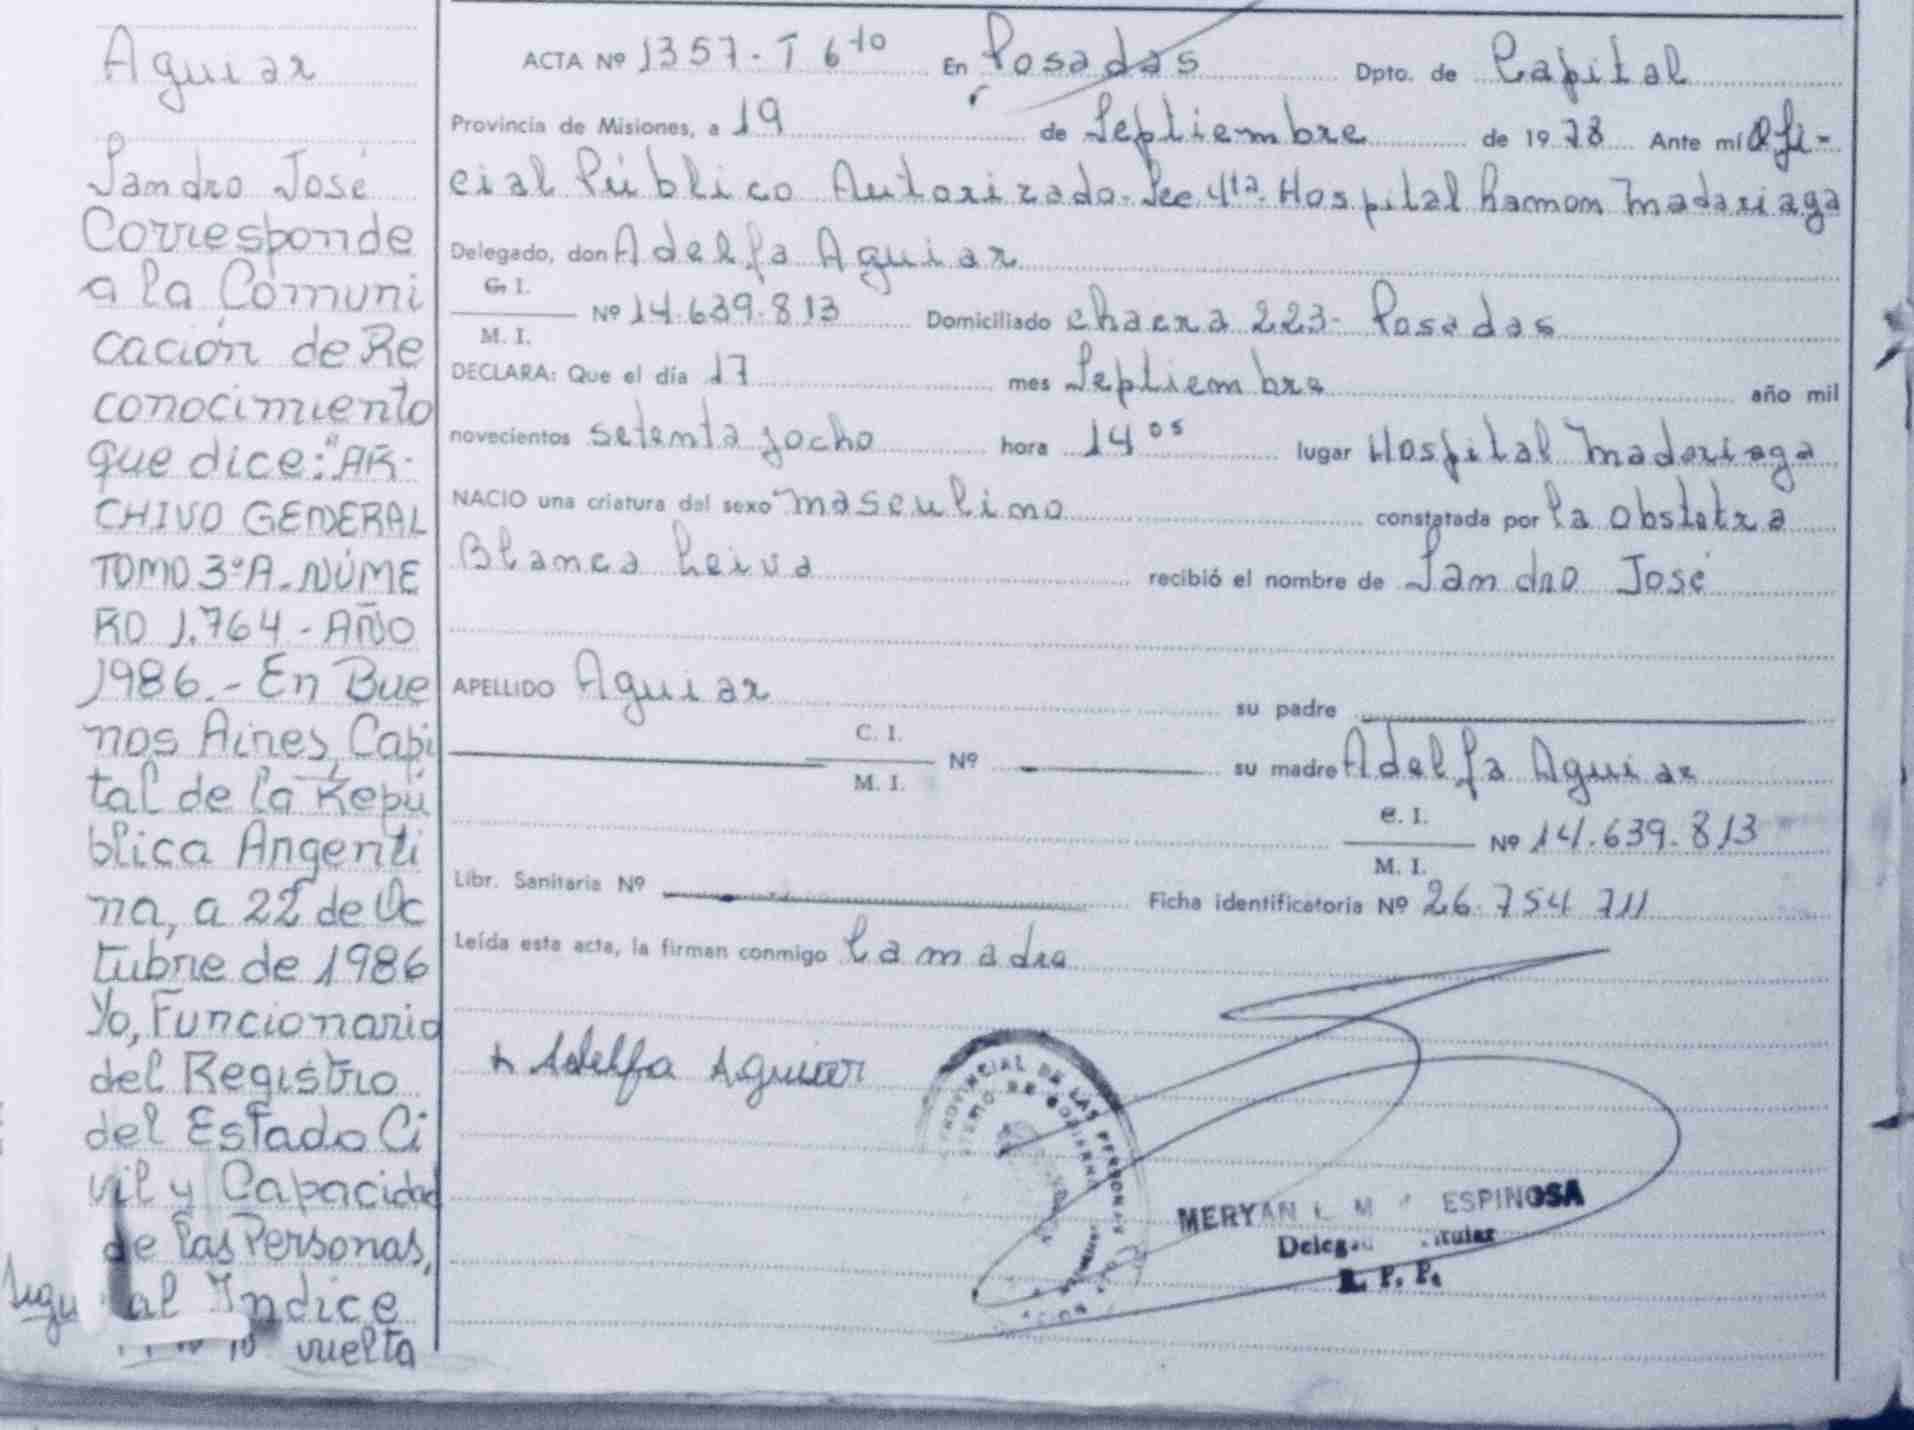 Aguiar
Sandro José
Corresponde
a la Comuni
cación de Re
conocimiento
que dice: "AR-
CHIVO GENERAL
TOMO 3º A.-NÚME
RO 1.764 - AÑO
1986.- En Bue
nos Aires, Capi
tal de la Repú
blica Argenti
na, a 22 de Oc
tubre de 1986
Yo, Funcionario
del Registro
del Estado Ci
vil y Capacidad
de las Personas,
al Indice
vuelta
ACTA Nº 1357 - T 6to En Posadas Dpto. de Capital
Provincia de Misiones, a 19 de Septiembre de 1978 Ante mí Ofi-
cial Público Autorizado - Sec 4ta. Hospital Ramon Madariaga
Delegado, don Adelfa Aguiar
C. I.
M. I. Nº 14.639.813 Domiciliado chacra 223 - Posadas
DECLARA: Que el día 17 mes Septiembre año mil
novecientos setenta yocho hora 14 05 lugar Hospital Madariaga
NACIO una criatura del sexo masculino constatada por la obstetra
Blanca Leiva recibió el nombre de Sandro José
APELLIDO Aguiar su padre
C. I.
M. I. Nº su madre Adelfa Aguiar
C. I.
M. I. Nº 14.639.813
Libr. Sanitaria Nº Ficha identificatoria Nº 26.754 711
Leída esta acta, la firman conmigo la madre
Adelfa Aguiar
PROVINCIAL DE LAS PERSONAS
DE GOBIERNO
MERYAN L. M ESPINOSA
R. P. P.